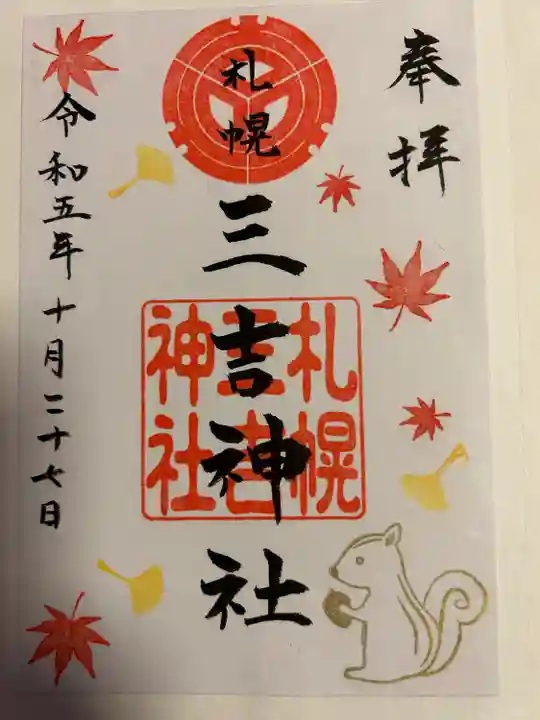 奉拝
札幌
三吉神社
札幌
三吉
神社
令和五年十月二十七日